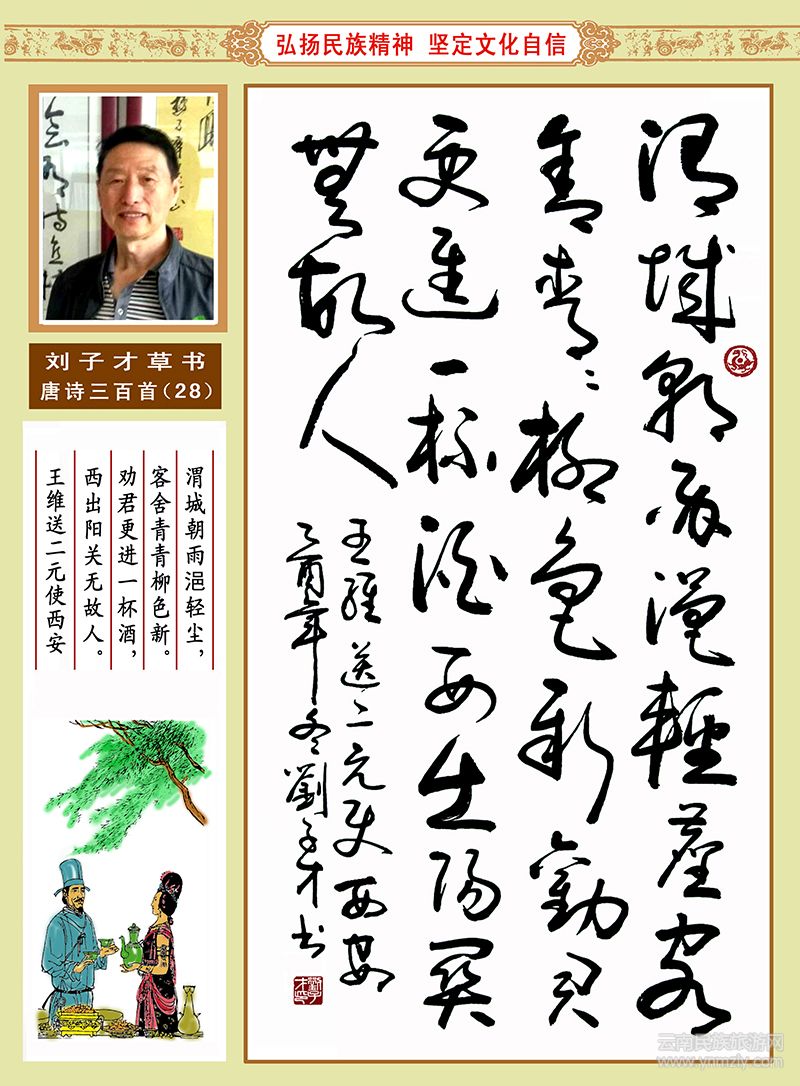 弘扬民族精神 坚定文化自信
刘子才草书
唐诗三百首(28)
渭城朝雨浥轻尘，
客舍青青柳色新。
劝君更进一杯酒，
西出阳关无故人。
王维送二元使西安
渭城朝雨浥輕塵客
舍青々柳色新勸君
更進一杯酒西出陽關
無故人
王維送二元使西安
乙酉年冬劉子才书
云南民族旅游网
www.ynmzly.com